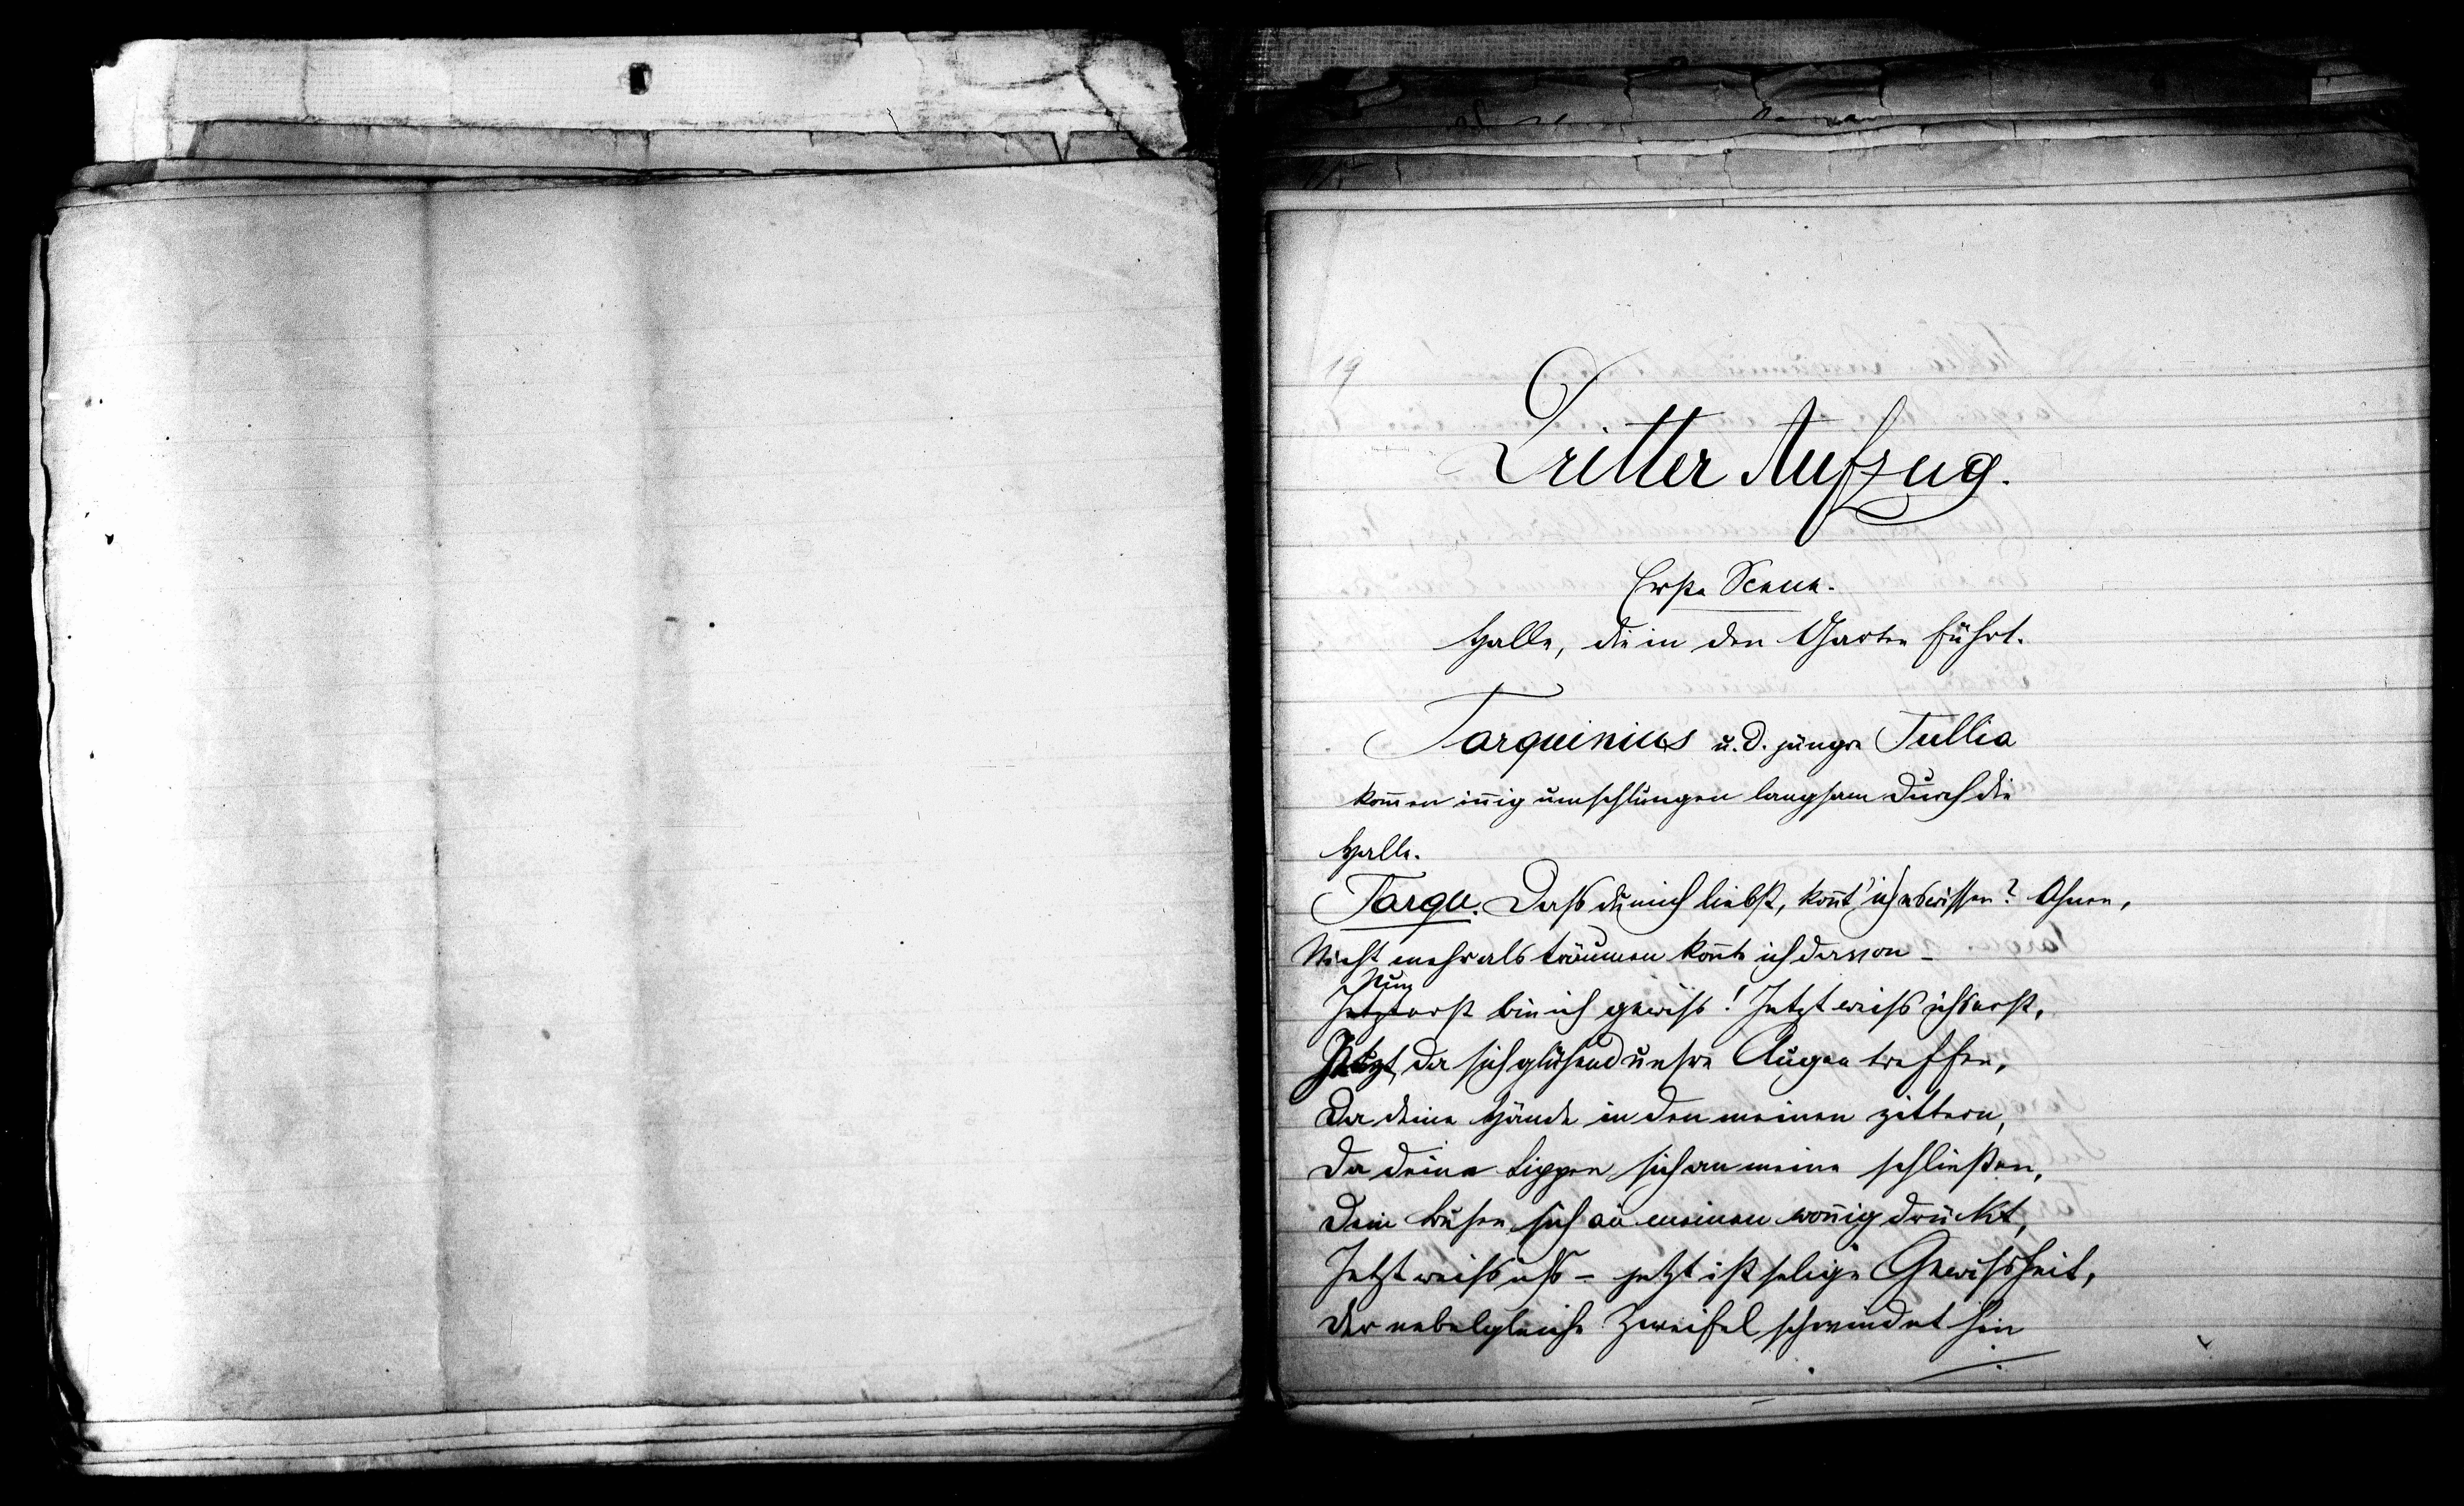 19
Dritter Aufzug.
Erste Scene.
Halle, die in den Garten führt.
Tarquinius u. d. jüngre Tullia
kom̄en in̄ig umschlungen langsam durch die
Halle.
Tarqu. Dass du mich liebst, kon̄t' ich es wissen? Ahnen,
Nicht mehr als träumen kon̄te ich davon –
Nun
Jetzt erst bin ich gewiss! Jetzt weiss ichs erst,
Jetzt, da sich glühend unsre Augen treffen,
Da deine Hände in den meinen zittern,
Da deine Lippen sich an meine schließen,
Dein Busen sich an meinen won̄ig drückt,
Jetzt weiss ichs – jetzt ist selige Gewissheit,
Der nebelgleiche Zweifel schwindet hin